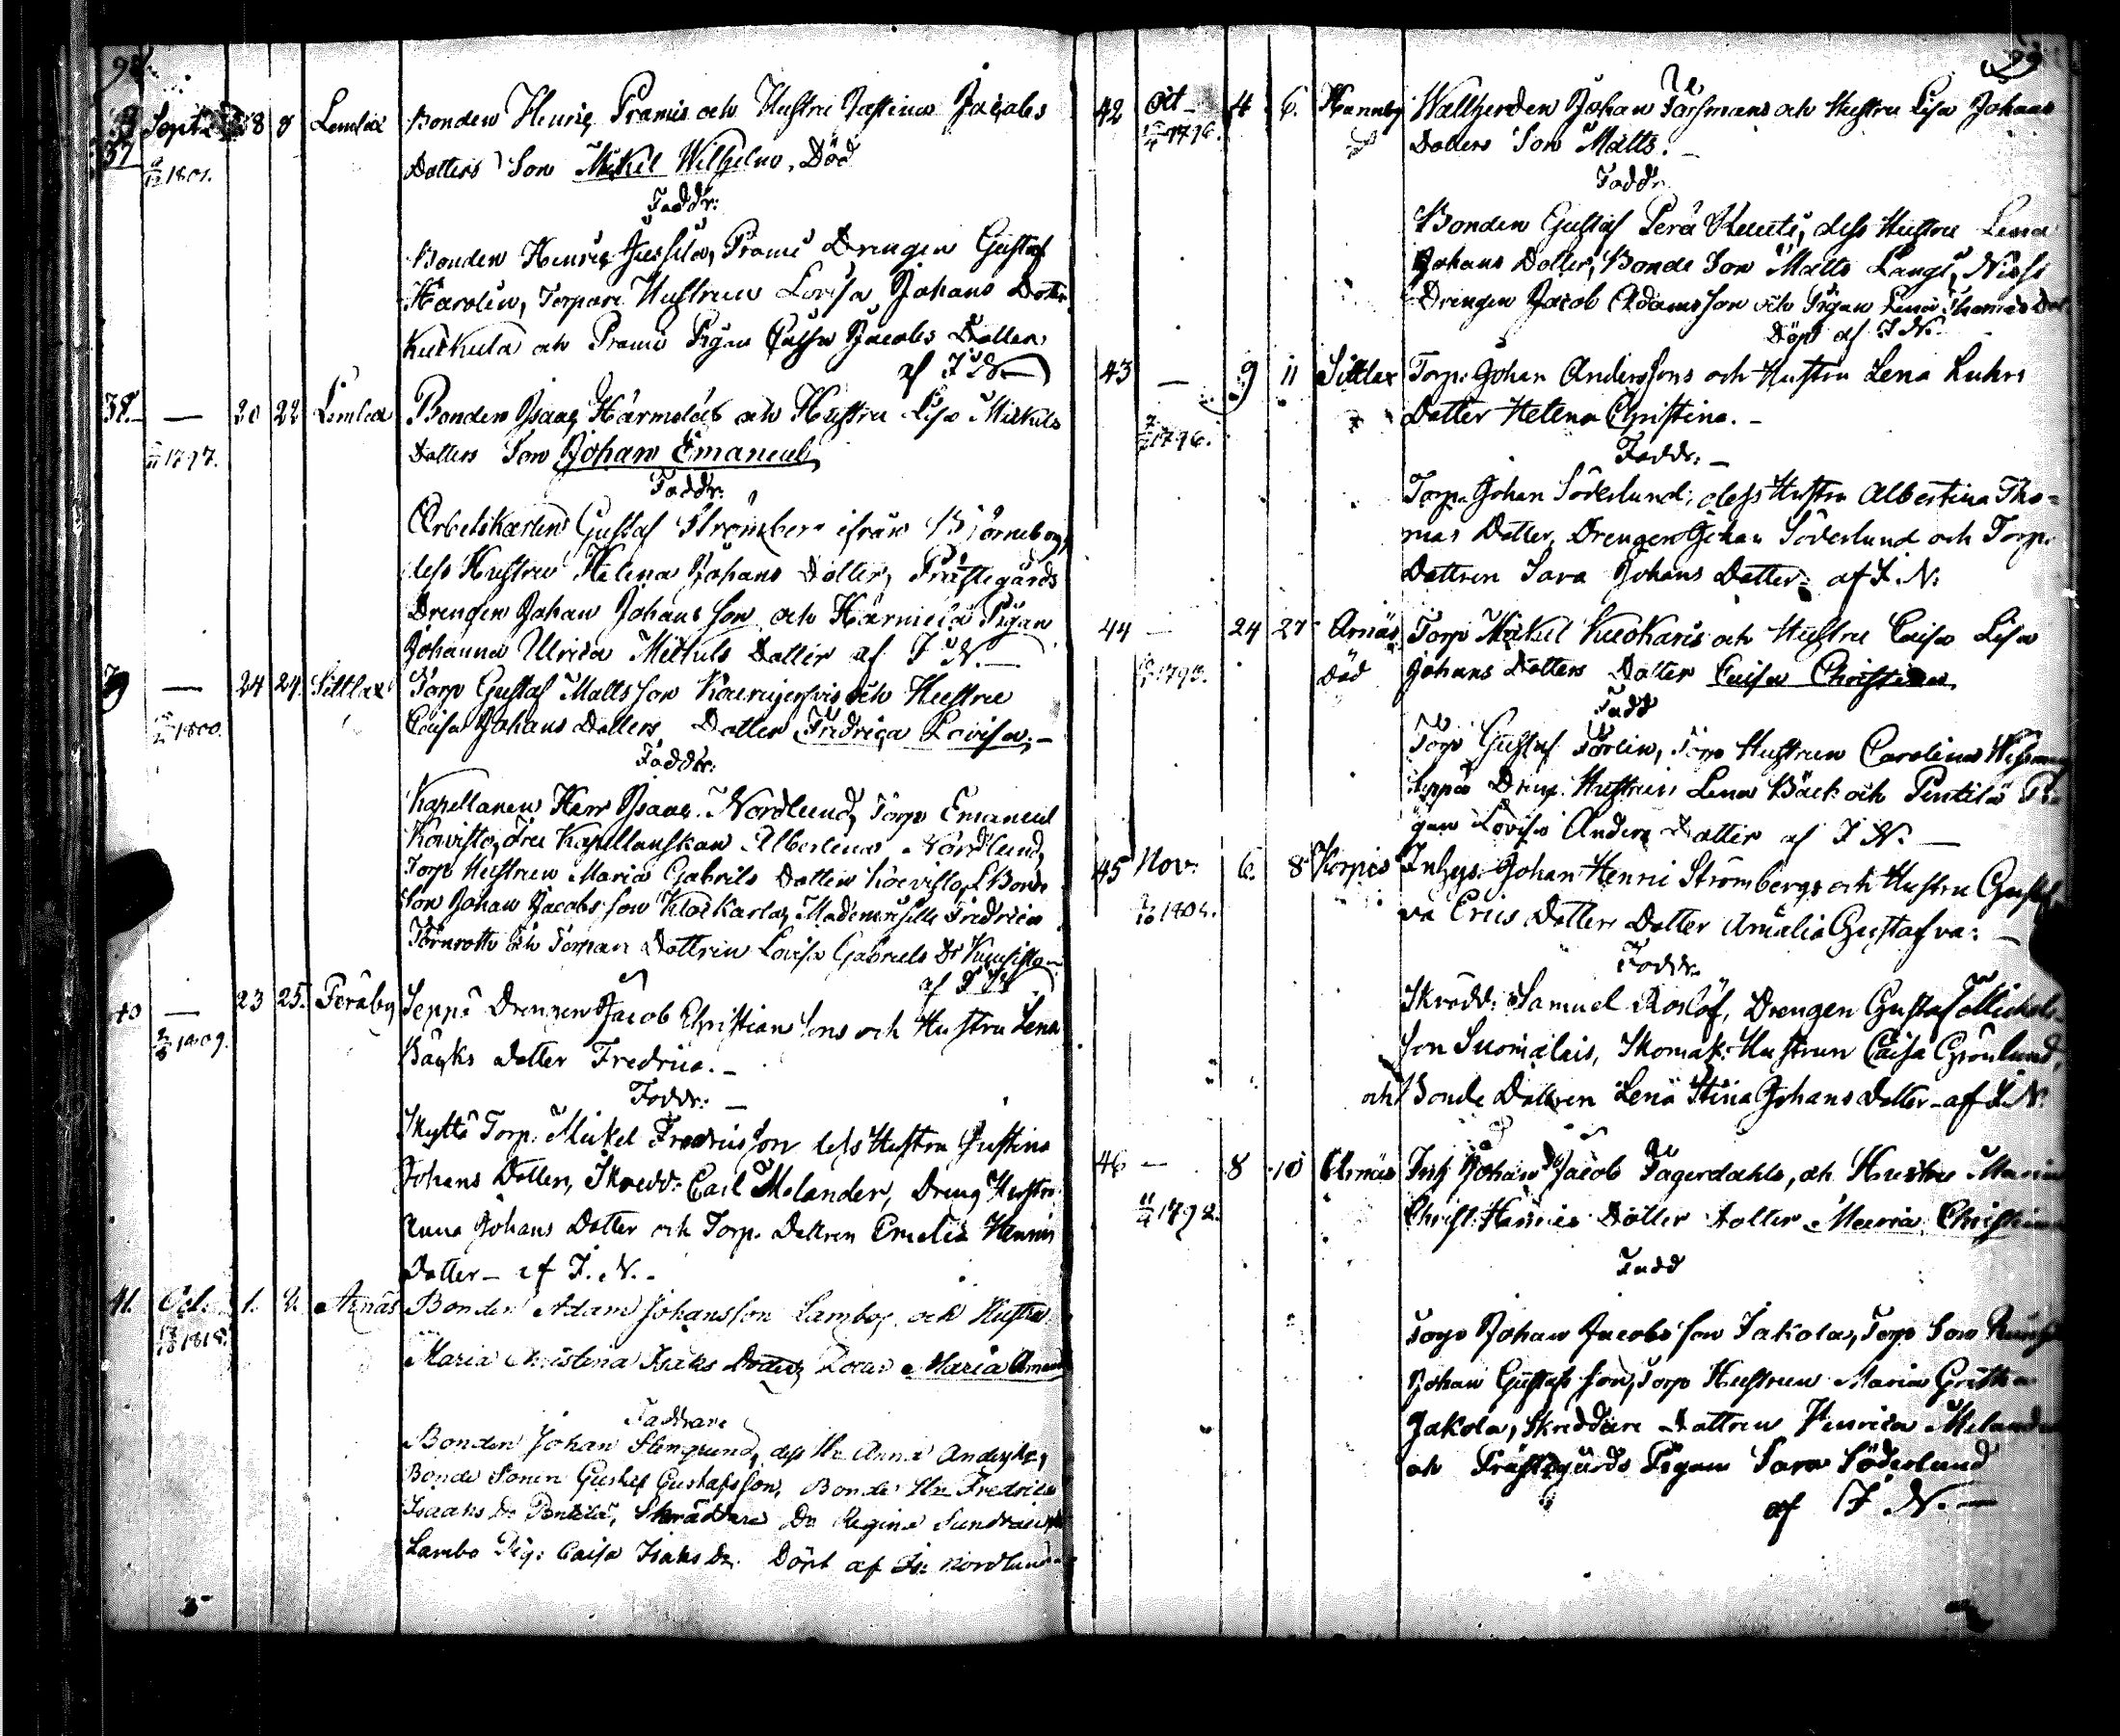 98.
37 Septr 8 8 Lemlax Bonden Henric Pramis och Hustru Justina Jacobs
1801. Dotters Son Mickel Wilhelm. Död
Faddr:
Bonden Henric Jussila, Prami Drengen Gustaf
Carolin, Torpare Hustrun Lovisa Johans Dotter
Kuckula och Prami Pigan Caisa Jacobs Dotter
af I N—
38. — 20 22 Lemlax Bonden Isaac Härmäläs och Hustru Lisa Mickels
1797. Dotters Son Johan Emanuel
Faddr:
Arbetskarlen Gustaf Strömberg ifrån Björneborg,
dess Hustru Helena Johans Dotter, Prästegårds
Drengen Johan Johansson och Härmälä Pigan
Johanna Ulrica Mickels Dotter af I N.—
39 — 24 24. Sittlax Torp Gustaf Mattsson och Hustru
1800. Caisa Johans Dotters Dotter Fredrica Lovisa.—
Faddr:
Kapellanen Herr Isaac Nordlund, Torp Emanuel
Koivisto, Fru Kapellanskan Albertina Nordlund,
Torp Hustrun Maria Gabriels Dotter Koivisto, Bonde
Son Johan Jacobsson Klockarla, Mademoiselle Fredrica
Törnroth och Torpare Dottren Lovisa Gabriels Dr
af I N
40 — 23 25. Peråby Seppä Drengen Jacob Christiansons och Hustru Lena
1809. Bäcks dotter Fredrica.—
Faddr:—
Skyttä Torp. Mickel Fredricsson dess Hustru Justina
Johans Dotter, Skredd: Carl Melander, Dreng Hustr.
Anna Johans Dotter och Torp. Dottren Emelia Henrics
Dotter— af I. N.-
41. Oct. 1. 2. Arnäs Bonden Adam Johansson Lambo, och Hustru
1818. Maria Christina Isaks Dotter, Maria Amanda
Faddrare
Bonden Johan Stengrund, dess Hu Anna Andersdr,
Bonde Sonen Gustaf Gustafsson, Bonde Hu Fredrica
Isaaks Dr Pentilä, Skräddare Dr Regina
Lambo Pig: Caisa Isaks Dr. Döpt af Is: Nordlund
99
42 Oct— 4 6. Hannby Wallherden Johan Forsmans och Hustru Lisa Johans
1796. Dotters Son Matts.—
Faddr
Bonden Gustaf Perä dess Hustru Lena
Johans Dotter, Bonde Son Matts Långs,
Drengen Jacob Adamsson och Pigan Lena Thomas Dot
Döpt af I N.—
43 — 9 11 Sittlax Torp. Johan Anderssons och Hustru Lena Luhrs
1796. Dotter Helena Christina.—
Faddr:—
Torp. Johan Söderlund, dess Hustru Albertina Tho=
mas Dotter, Drengen Johan Söderlund och Torp.
Dottren Sara Johans Dotter. af I. N.
44 — 24 27 Arnäs Torp Mickel Kuokaris och Hustru Caisa Lisa
Död Johans Dotters Dotter Caisa Christina
Fadd
Torp Gustaf Törlin, Torp Hustrun Carolina
Seppä Dreng Hustrun Lena Bäck och Pentilä Pi
gan Lovisa Anders Dotter af I N.—
45 Nov: 6. 8 Korpis Inhys. Johan Henric Strömbergs och Hustru Gustaf
1804. va Erics Dotters Dotter Amalia Gustafva:—
Faddr.
Skrädd: Samuel Roslöf, Drengen Gustaf Mickels
son Suomalais, Skomak: Hustrun Caisa Grönlund,
och Bonde Dottren Lena Stina Johans dotter— af I. N.
46 — 8 10 Arnäs Inh Johan Jacob Fagerdahls, och Hustru Maria
1792. Christ. Henrics Dotter dotter Maria Christina
Fadd
Torp Johan Jacobsson Jakola, Torp Son
Johan Gustafsson, Torp Hustrun Maria Gretha
Jakola, Skreddare Dottren Henrica Melander
och Prästegårds Pigan Sara Söderlund
af I N.—